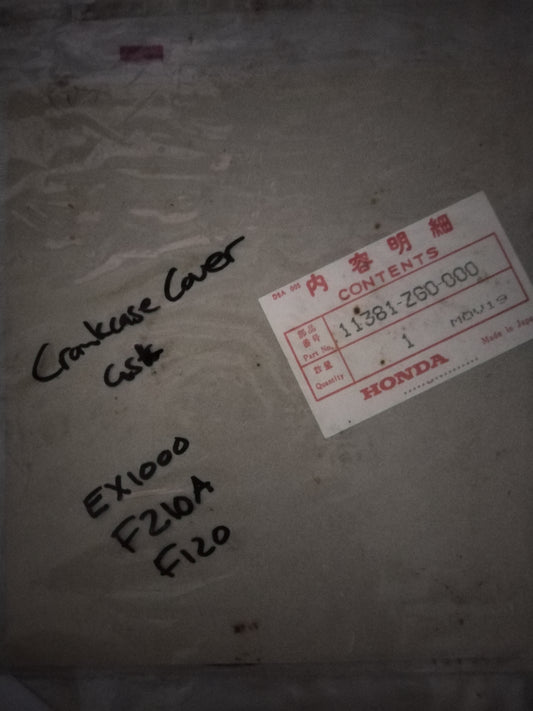 Crankcase Cover
Gsk
EX1000
F210A
F120
DEA 005
内容明細
CONTENTS
部品番号
Part No.
11381-ZG0-000
数量
Quantity
1
MOV19
HONDA
Made in Japan